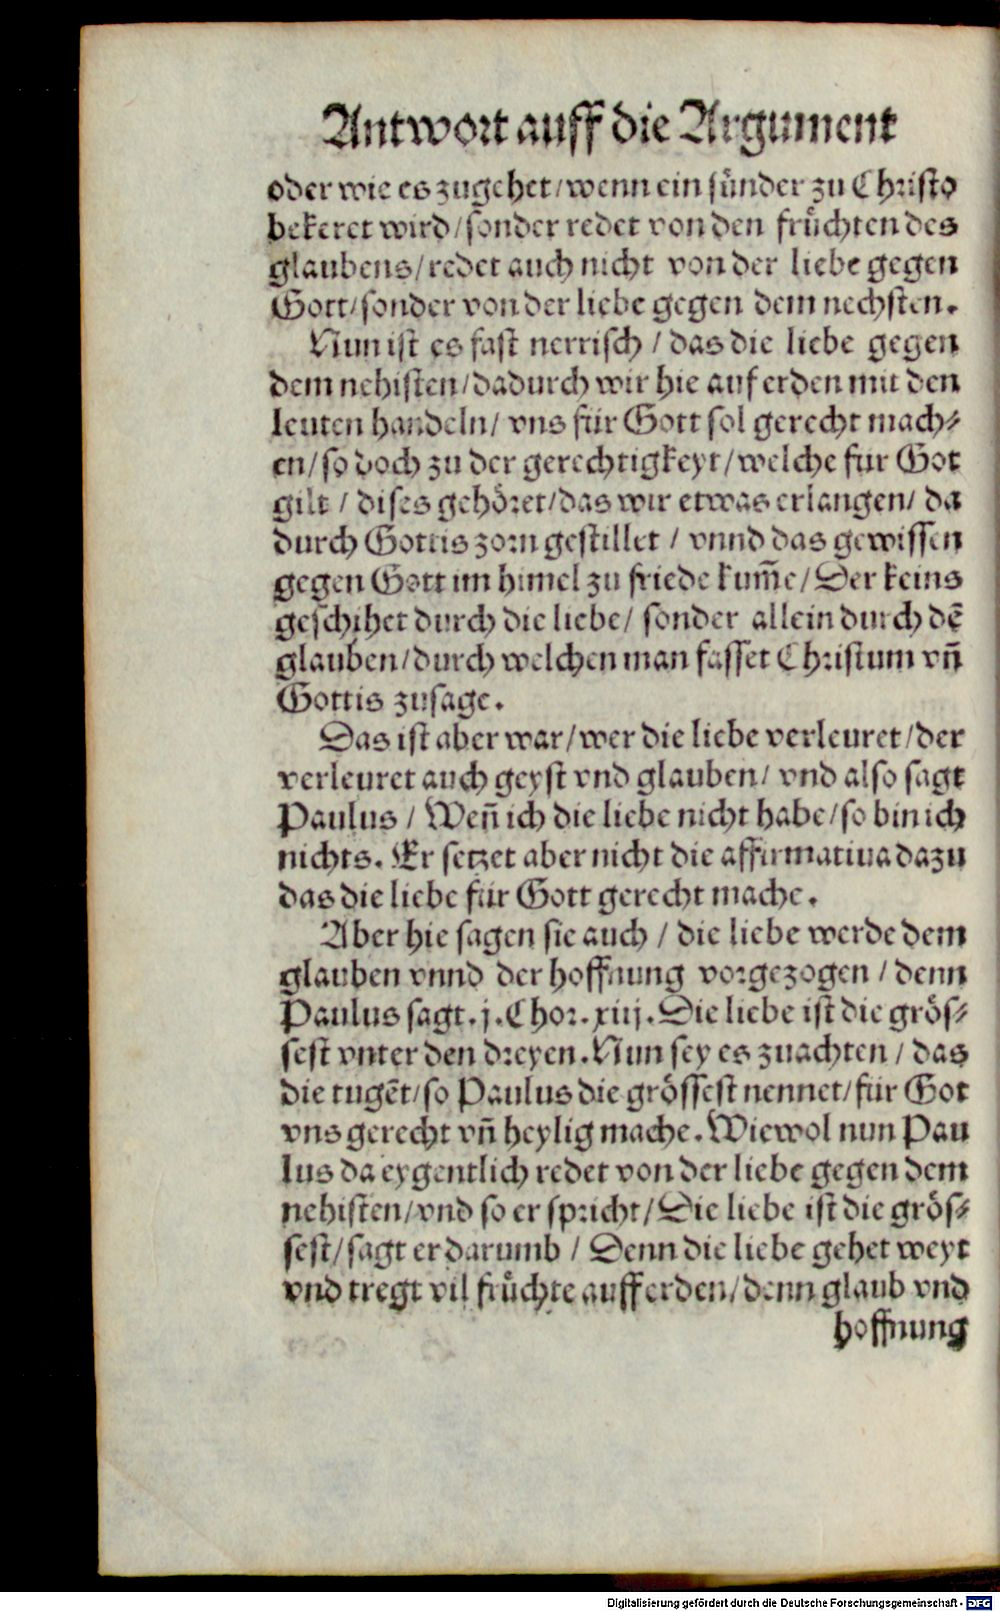 Antwort auff die Argument
oder wie es zugehet/wenn ein sünder zu Christo
bekeret wird/sonder redet von den früchten des
glaubens/redet auch nicht von der liebe gegen
Gott/sonder von der liebe gegen dem nechsten.
Nun ist es fast nerrisch / das die liebe gegen
dem nehisten/dadurch wir hie auf erden mit den
leuten handeln/ vns für Gott sol gerecht mach⸗
en/so doch zu der gerechtigkeyt/welche für Got
gilt / dises gehöret/das wir etwas erlangen/ da
durch Gottis zorn gestillet / vnnd das gewissen
gegen Gott im himel zu friede kum̃e/Der keins
geschihet durch die liebe/ sonder allein durch dẽ
glauben/durch welchen man fasset Christum vñ
Gottis zusage.
Das ist aber war/wer die liebe verleuret/der
verleuret auch geyst vnd glauben/ vnd also sagt
Paulus / Weñ ich die liebe nicht habe/so bin ich
nichts. Er setzet aber nicht die affirmatiua dazu
das die liebe für Gott gerecht mache.
Aber hie sagen sie auch / die liebe werde dem
glauben vnnd der hoffnung vorgezogen / denn
Paulus sagt.j.Chor.xiij.Die liebe ist die grös⸗
sest vnter den dreyen.Nun sey es zuachten / das
die tugẽt/so Paulus die grössest nennet/für Got
vns gerecht vñ heylig mache.Wiewol nun Pau
lus da eygentlich redet von der liebe gegen dem
nehisten/vnd so er spricht/Die liebe ist die grös⸗
sest/sagt er darumb / Denn die liebe gehet weyt
vnd tregt vil früchte auff erden/denn glaub vnd
hoffnung
Digitalisierung gefördert durch die Deutsche Forschungsgemeinschaft - DFG